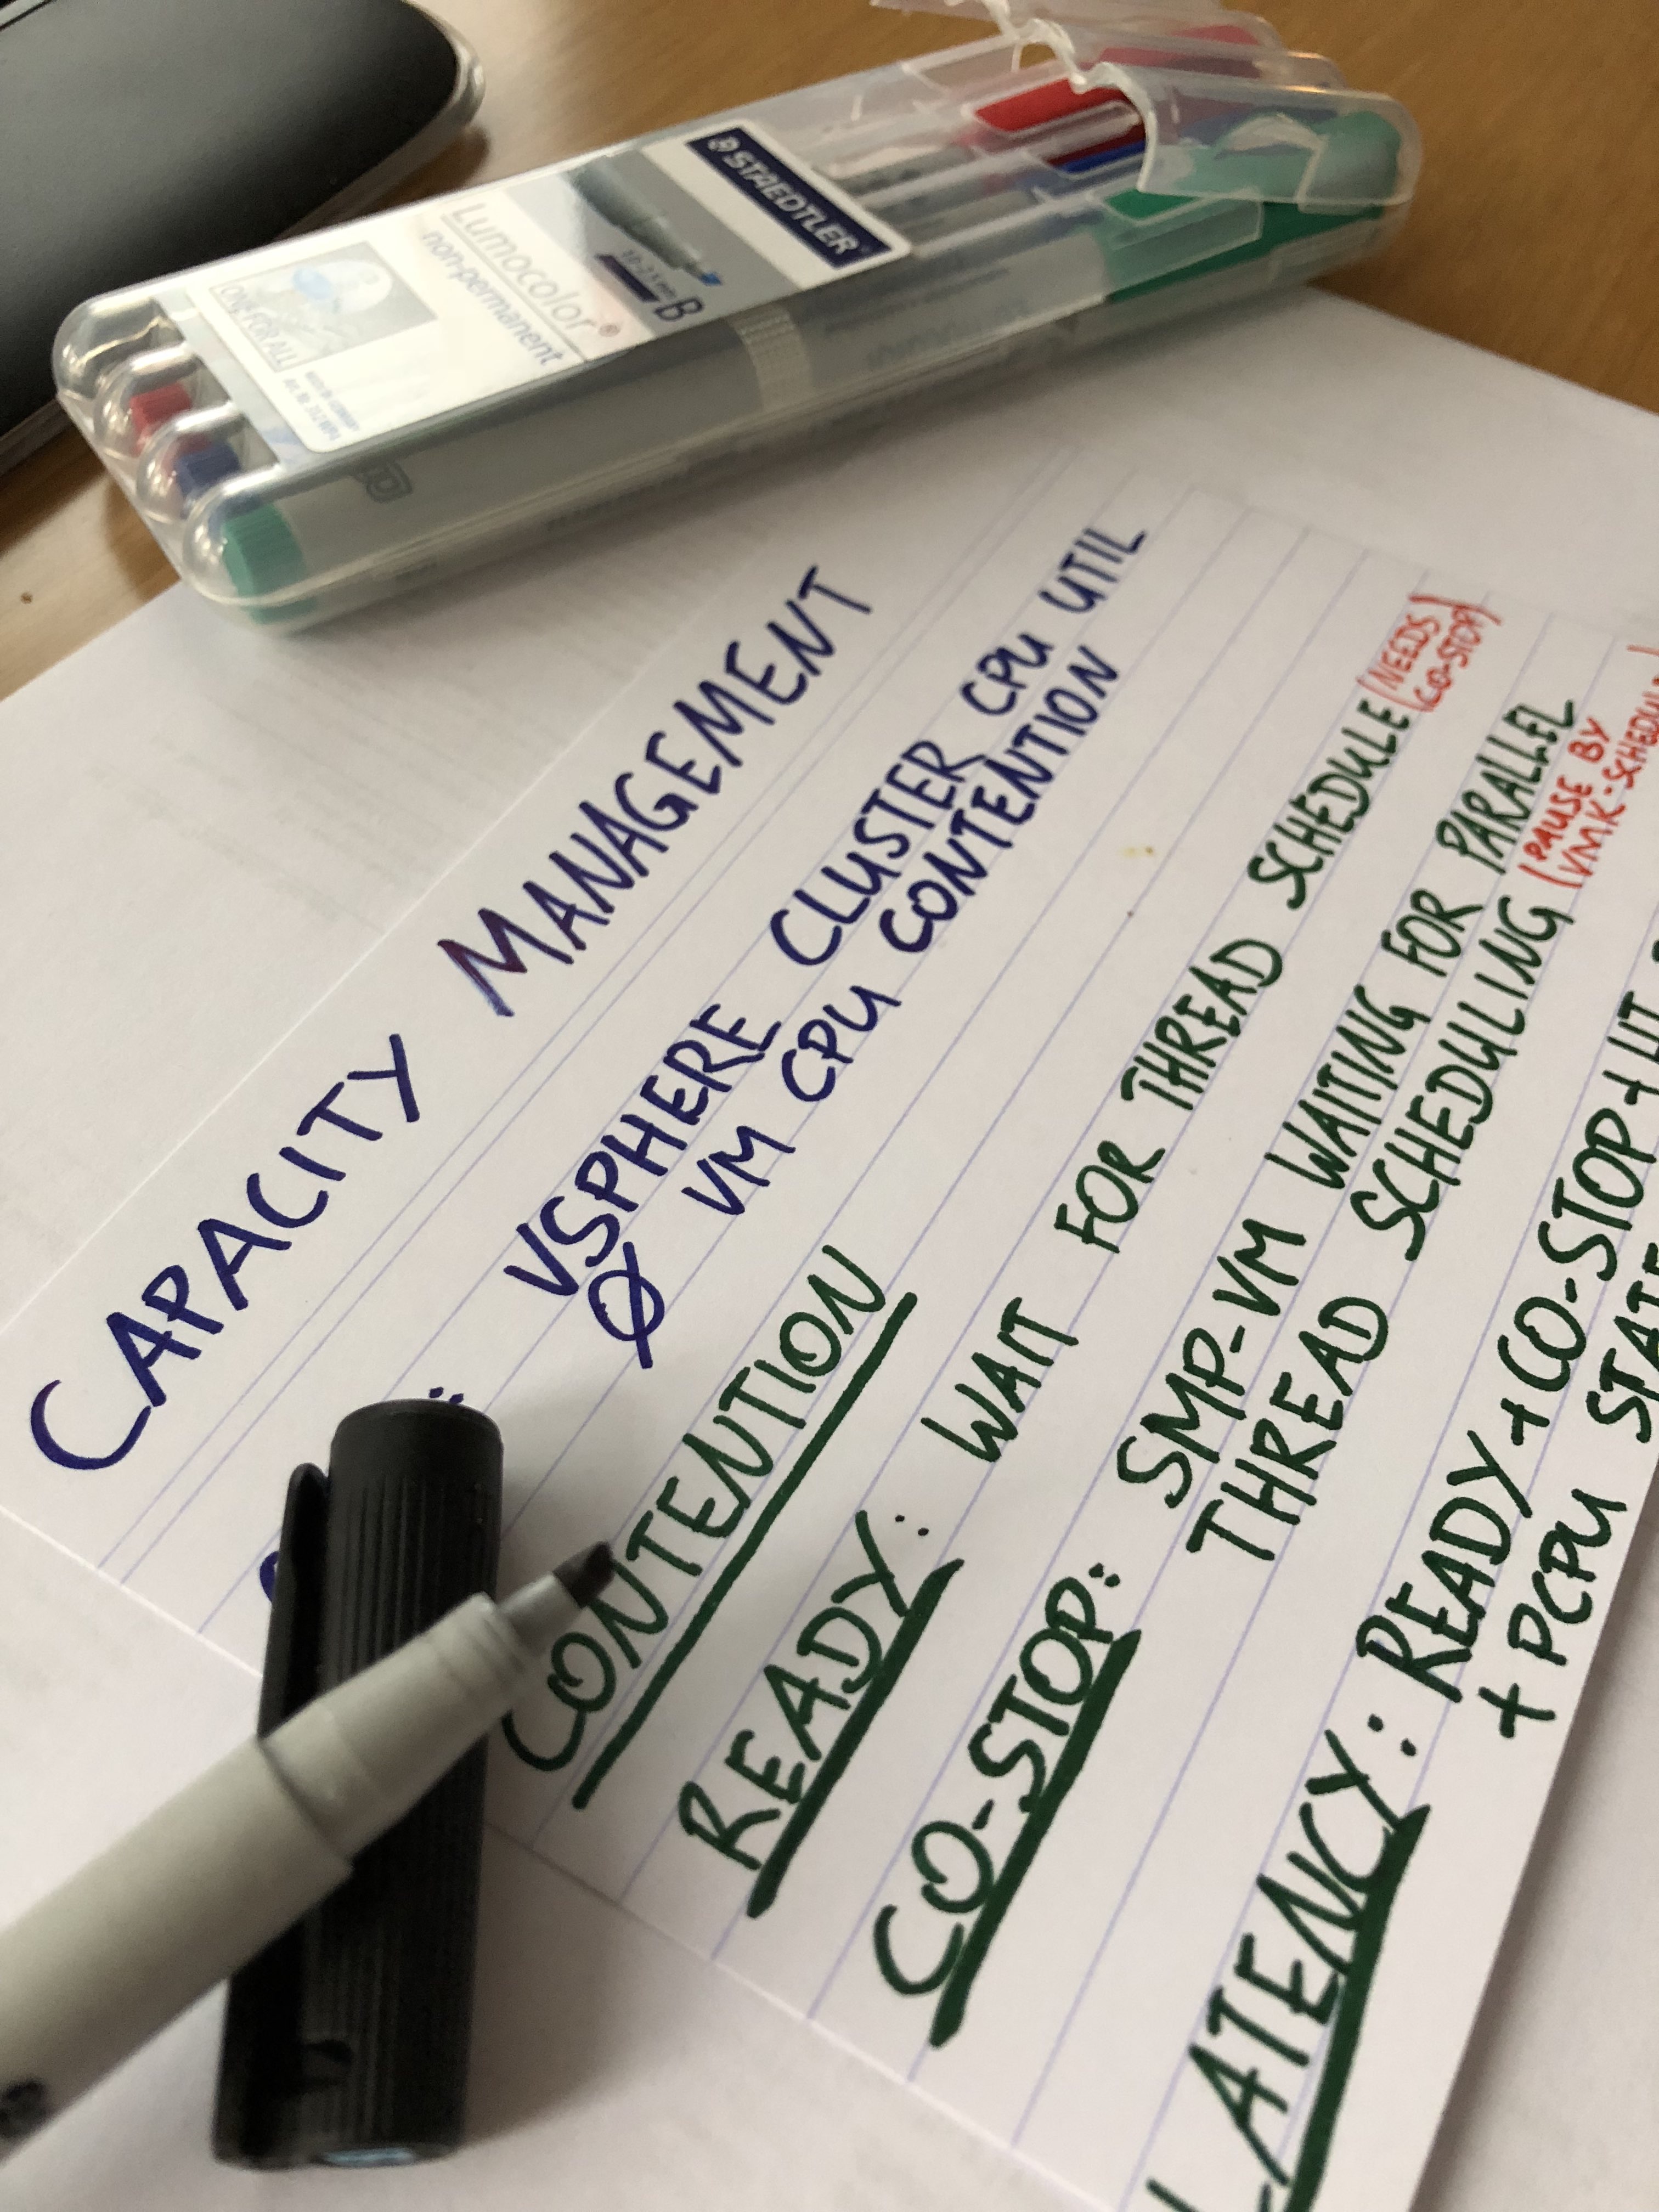 STAEDTLER
Lumocolor®
non-permanent
B
ONE FOR ALL
CAPACITY MANAGEMENT
: VSPHERE CLUSTER CPU UTIL
Ø VM CPU CONTENTION
CONTENTION
READY: WAIT FOR THREAD SCHEDULE (NEEDS
CO-STOP)
CO-STOP: SMP-VM WAITING FOR PARALLEL
THREAD SCHEDULING (PAUSE BY
VMK-SCHEDULE
LATENCY: READY + CO-STOP + HT
+ PCPU STATE